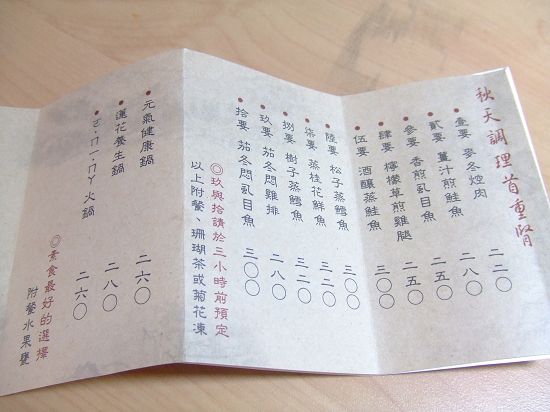 秋天調理首重腎
•壹要 麥冬焢肉 二二○
•貳要 薑汁煎鮭魚 二八○
•參要 香煎虱目魚 二五○
•肆要 檸檬草煎雞腿 二五○
•伍要 酒釀蒸鮭魚 三○○
•陸要 松子蒸鱈魚 三○○
•柒要 蒸桂花鮮魚 三二○
•捌要 樹子蒸鱈魚 三二○
•玖要 茄冬悶雞排 二八○
•拾要 茄冬悶虱目魚 三○○
◎玖與拾請於三小時前預定
以上附餐、珊瑚茶或菊花凍
•元氣健康鍋 二六○
•蓮花養生鍋 二八○
•ㄇㄧ·ㄇㄚ火鍋 二六○
◎素食最好的選擇
附餐水果甕